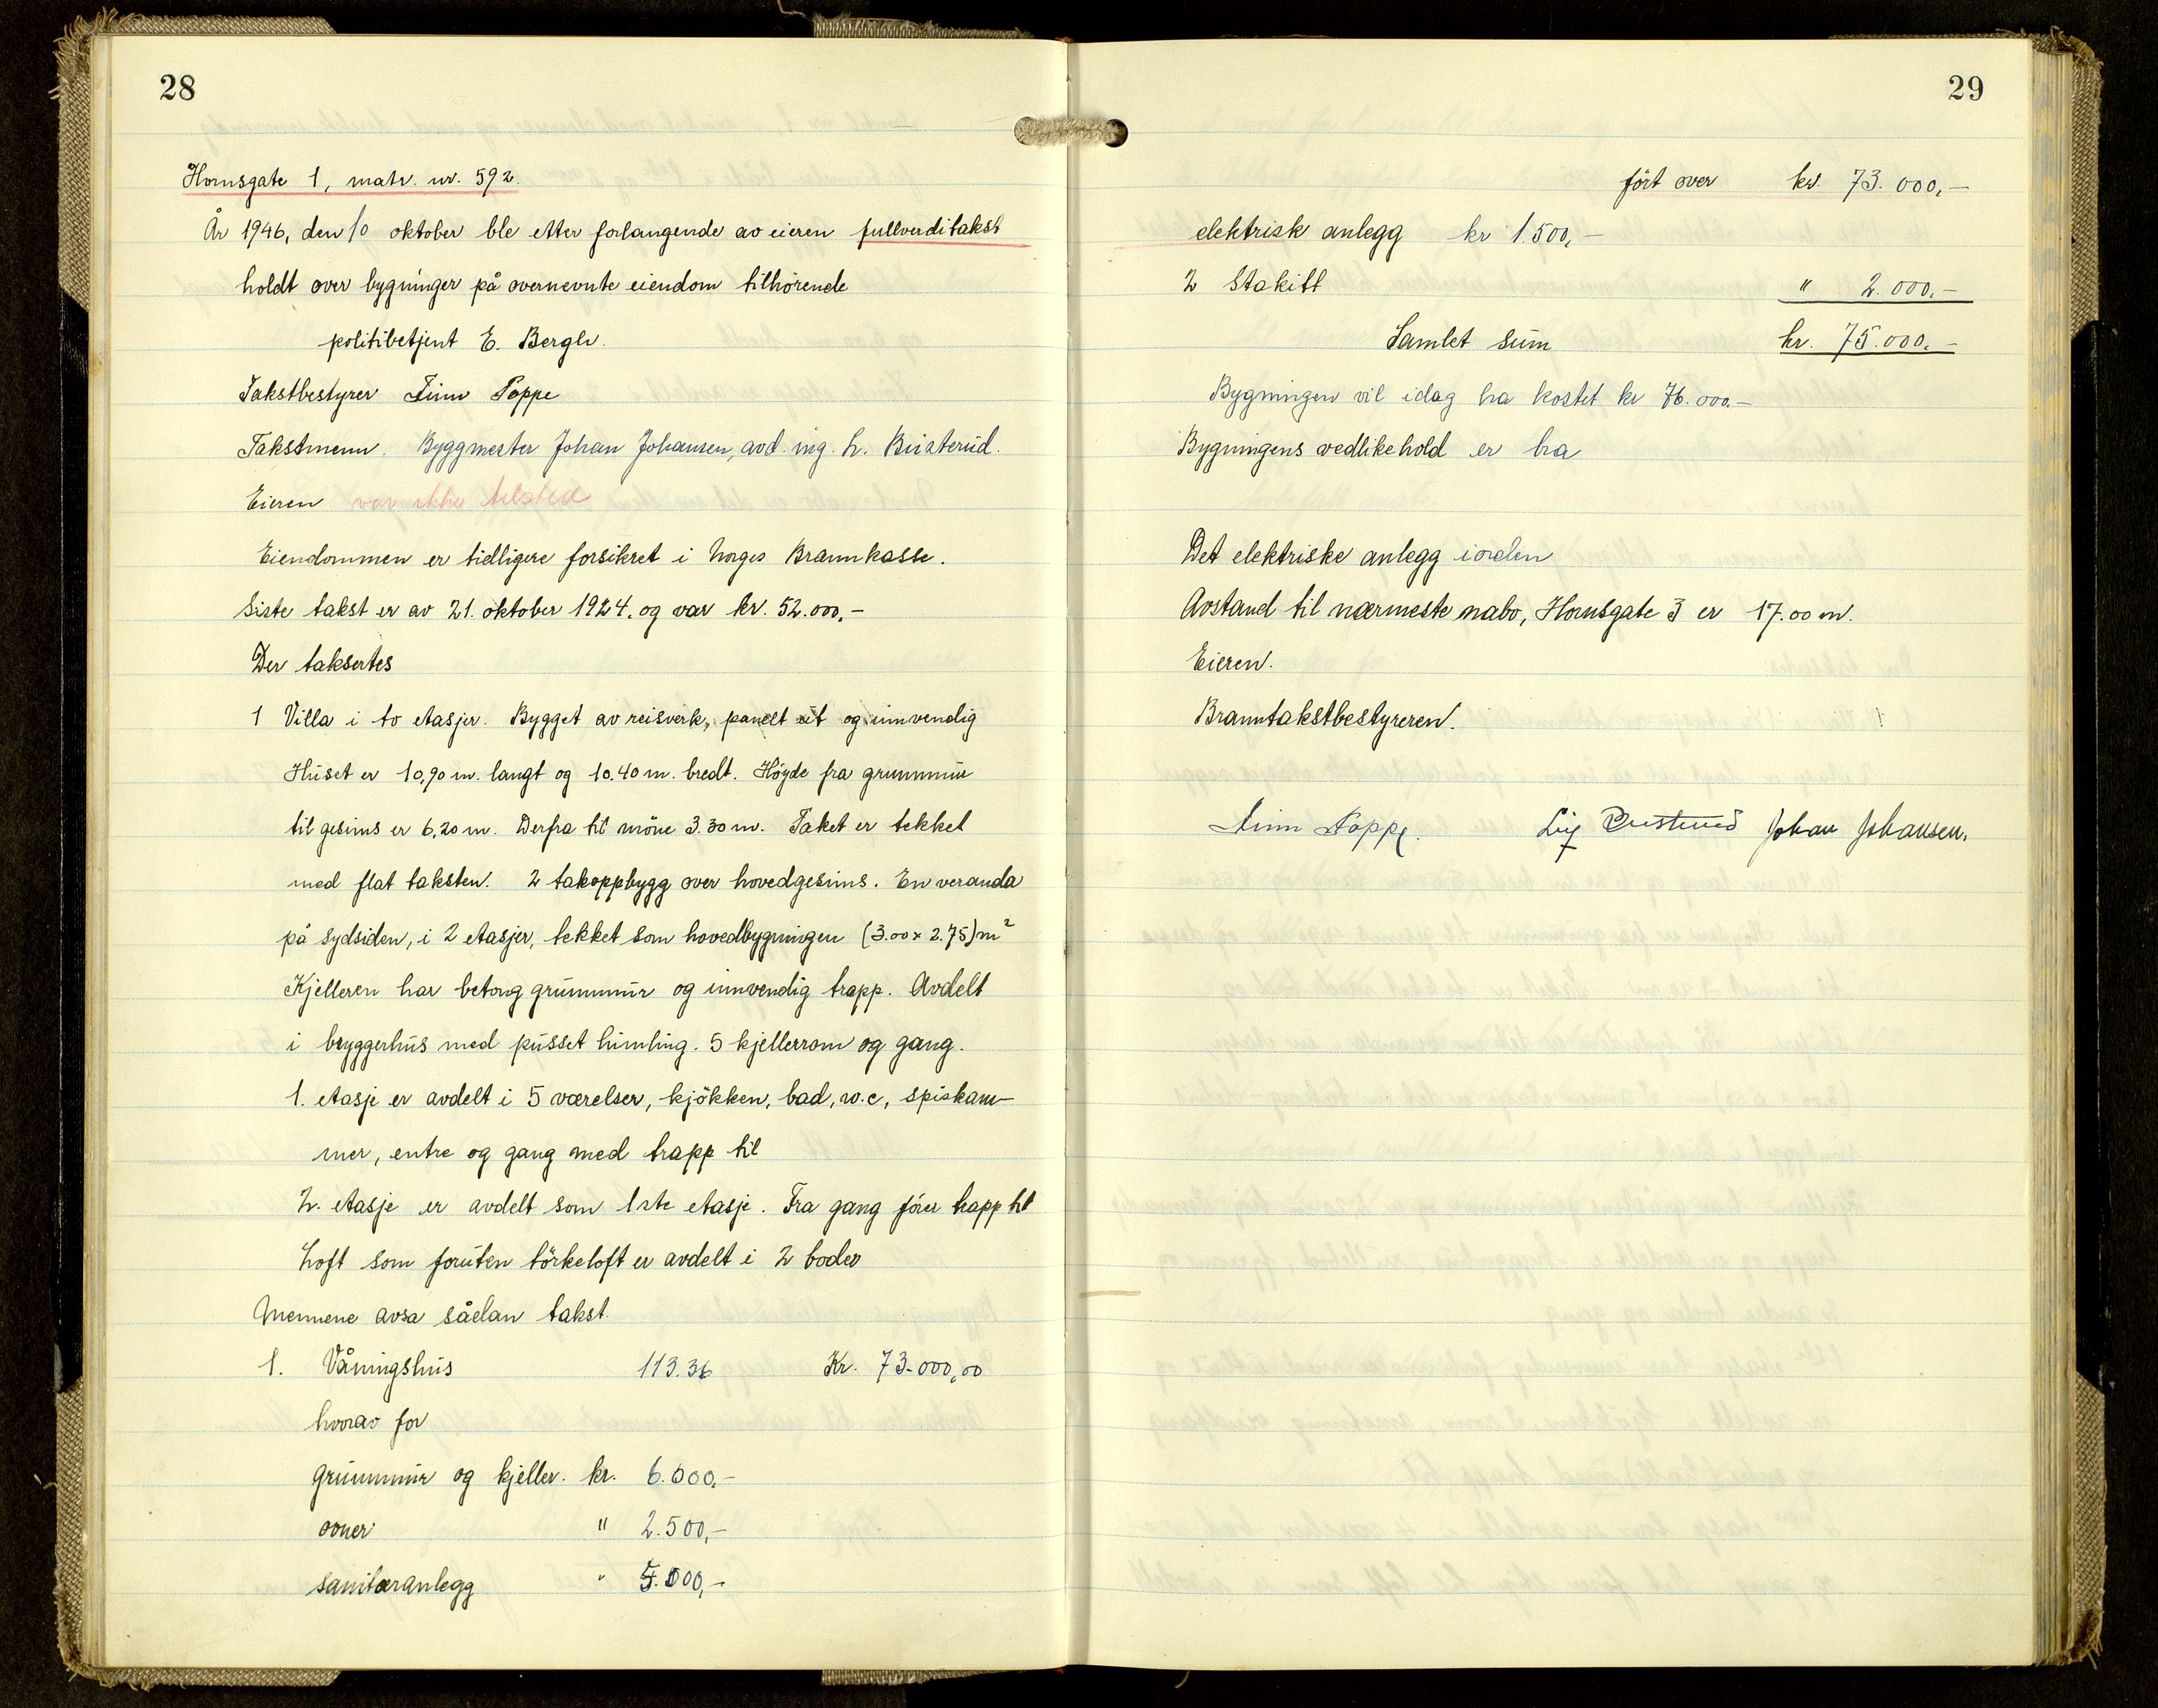 28
Hornsgate 1, matr. nr. 592.
År 1946, den 10 oktober ble etter forlangende av eieren fullverditakst
holdt over bygninger på overnevnte eiendom tilhörende
politibetjent E. Bergh.
Takstbestyrer Finn Poppe
Takstmenn. Byggmester Johan Johansen, avd. ing. L. Busterud.
Eieren var ikke tilsted
Eiendommen er tidligere forsikret i Norges Brannkasse.
Siste takst er av 21. oktober 1924. og var kr. 52.000,-
Der taksertes
1 Villa i to etasjer. Bygget av reisverk, panelt ut og innvendig
Huset er 10,90 m. langt og 10.40 m. bredt. Höyde fra grunnmur
til gesims er 6,20 m. Derfra til möne 3.30 m. Taket er tekket
med flat taksten. 2 takoppbygg over hovedgesims. En veranda
på sydsiden, i 2 etasjer, tekket som hovedbygningen (3.00 x 2.75) m²
Kjelleren har betong grunnmur og innvendig trapp. Avdelt
i bryggerhus med pusset himling. 5 kjellerrom og gang.
1. etasje er avdelt i 5 værelser, kjökken, bad, w.c, spiskam-
mer, entre og gang med trapp til
2. etasje er avdelt som 1ste etasje. Fra gang förer trapp til
Loft som foruten törkeloft er avdelt i 2 boder
Mennene avsa sådan takst.
1. Våningshus 113.36 Kr. 73.000,00
hvorav for
grunnmur og kjeller. kr. 6.000,-
ovner " 2.500,-
sanitæranlegg " 5.000,-
29
fört over kr. 73.000,-
elektrisk anlegg kr 1.500,-
2 Stakitt " 2.000,-
Samlet sum kr. 75.000,-
Bygningen vil idag ha kostet kr 76.000.-
Bygningens vedlikehold er bra
Det elektriske anlegg iorden
Avstand til nærmeste nabo, Hornsgate 3 er 17.00 m.
Eieren.
Branntakstbestyreren.
Finn Poppe. Busterud Johan Johansen.